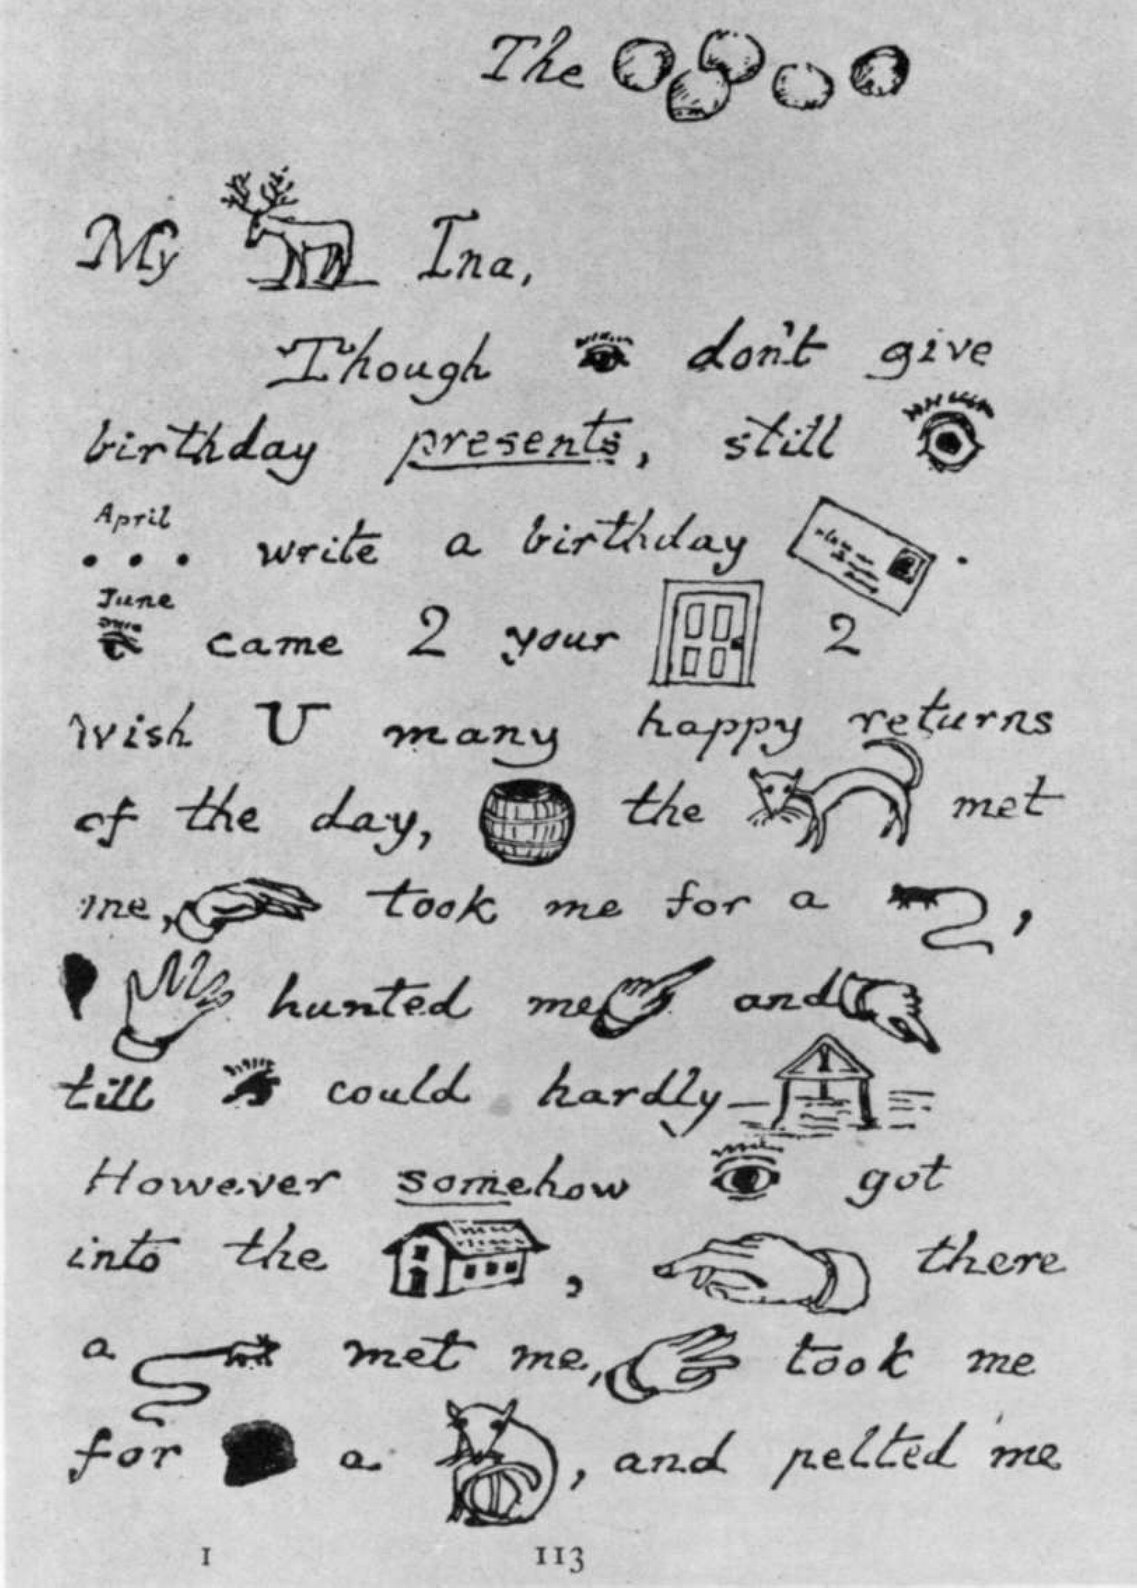 The
My Ina,
Though don't give
birthday presents, still
April
. . . write a birthday .
June
came 2 your 2
wish U many happy returns
of the day, the met
me, took me for a ,
hunted me and
till could hardly —
However somehow got
into the , there
a met me, took me
for a , and pelted me
I 113